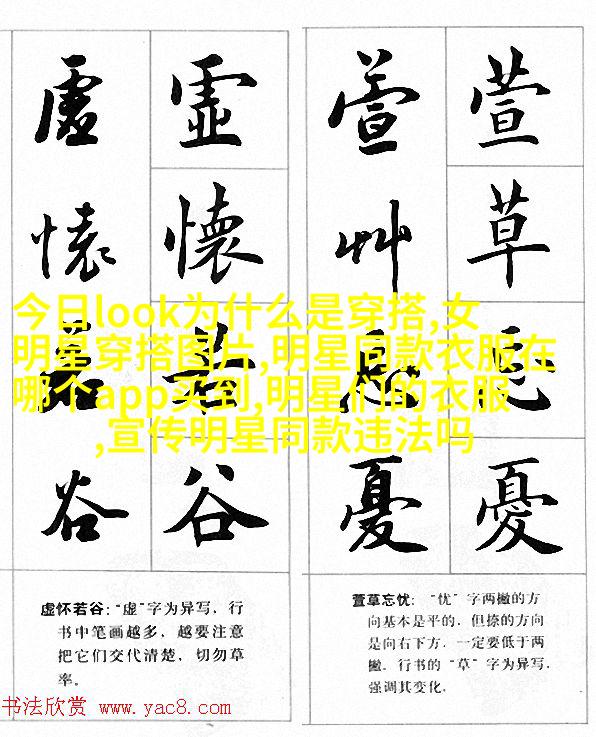 虛懷若谷
虛懷若谷
萱艸忘憂
萱草忘憂
今日look为什么是穿搭,女
明星穿搭图片,明星同款衣服在
哪个app买到,明星们的衣服
,宣传明星同款违法吗
虚怀若谷:“虚”字为异写，行
书中笔画越多，越要注意
把它们交代清楚，切勿草
率。
萱草忘忧：“忧”字两撇的方
向基本是平的，但捺的方向
是向右下方，一定要低于两
撇。行书的“草”字为异写，
强调其变化。
书法欣赏 www.yac8.com